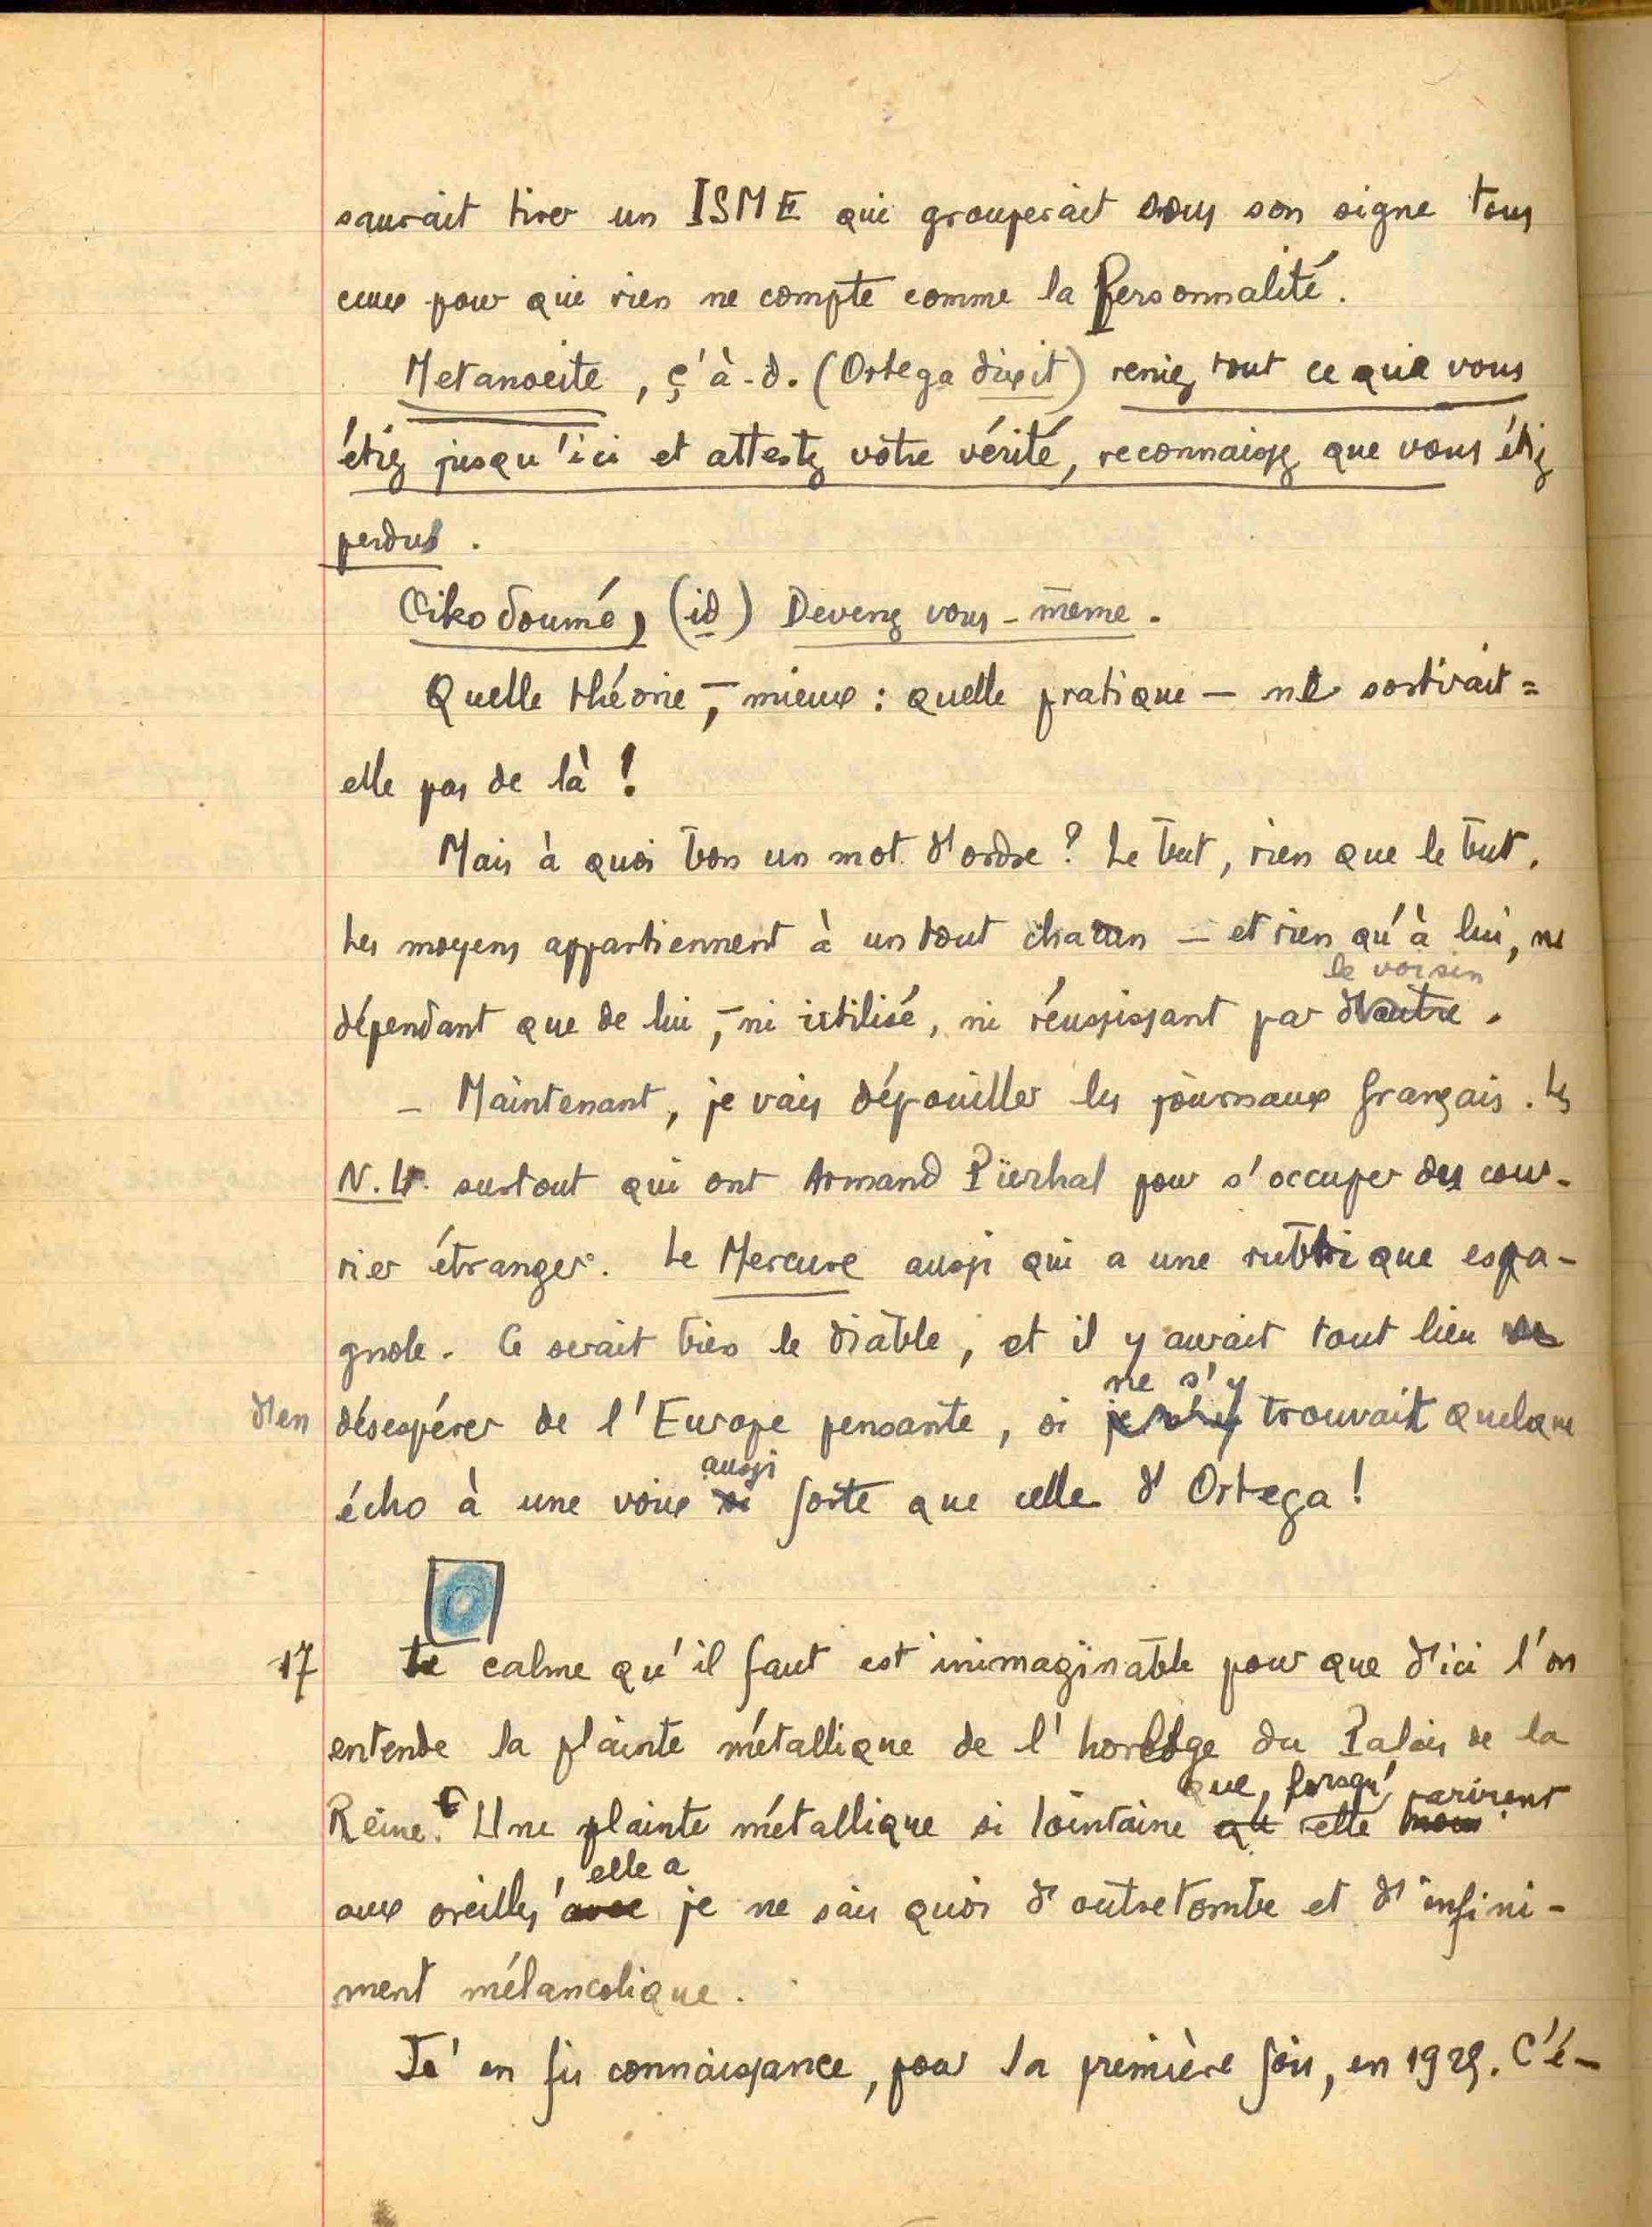 saurait tirer un ISME qui grouperait sous son signe tous
ceux pour qui rien ne compte comme la Personnalité.
Metanoeite, ç'à-d. (Ortega dixit) reniez tout ce que vous
étiez jusqu'ici et attestez votre vérité, reconnaissez que vous étiez
perdus.
Oikodoumé, (id) Devenez vous-même.
Quelle théorie, — mieux : quelle pratique — ne sortirait=
elle pas de là !
Mais à quoi bon un mot d'ordre ? Le but, rien que le but.
Les moyens appartiennent à un tout chacun — et rien qu'à lui, ne
le voisin
dépendant que de lui, — ni utilisé, ni réussissant par d'autre.
— Maintenant, je vais dépouiller les journaux français. Les
N.L. surtout qui ont Armand Pierhal pour s'occuper des cour-
rier étranger. Le Mercure aussi qui a une rubrique espa-
gnole. Ce serait bien le diable, et il y aurait tout lieu de
ne s'y
d'en désespérer de l'Europe pensante, si trouvait quelque
aussi
écho à une voix si forte que celle d'Ortega !
17 Le calme qu'il faut est inimaginable pour que d'ici l'on
entende la plainte métallique de l'horloge du Palais de la
que, lorsqu' parvient
Reine. Une plainte métallique si lointaine cette
elle a
aux oreilles, avec je ne sais quoi d'outretombe et d'infini-
ment mélancolique.
Je' en fis connaissance, pour la première fois, en 1929. C'é-